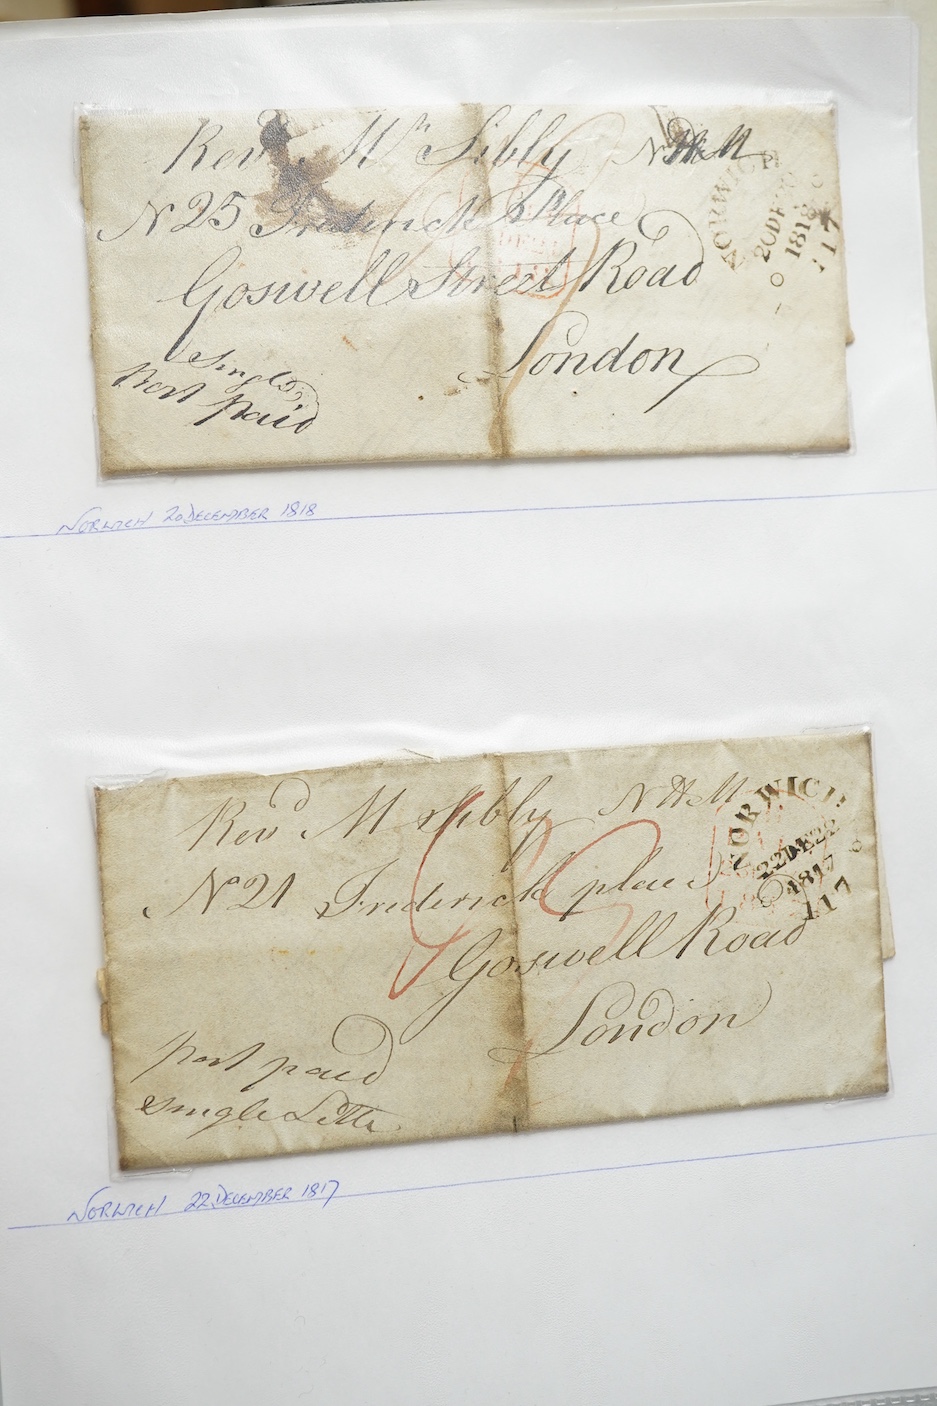 Revd Mr Sibly N H M
No 25 Frederick Place
Goswell Street Road
London
Single
Post paid
NORWICH
20DE20
1818
117
NORWICH 20 DECEMBER 1818
Revd M Sibly N H M
No 21 Frederick place
Goswell Road
London
post paid
Single Letter
NORWICH
22DE22
1817
117
NORWICH 22 DECEMBER 1817